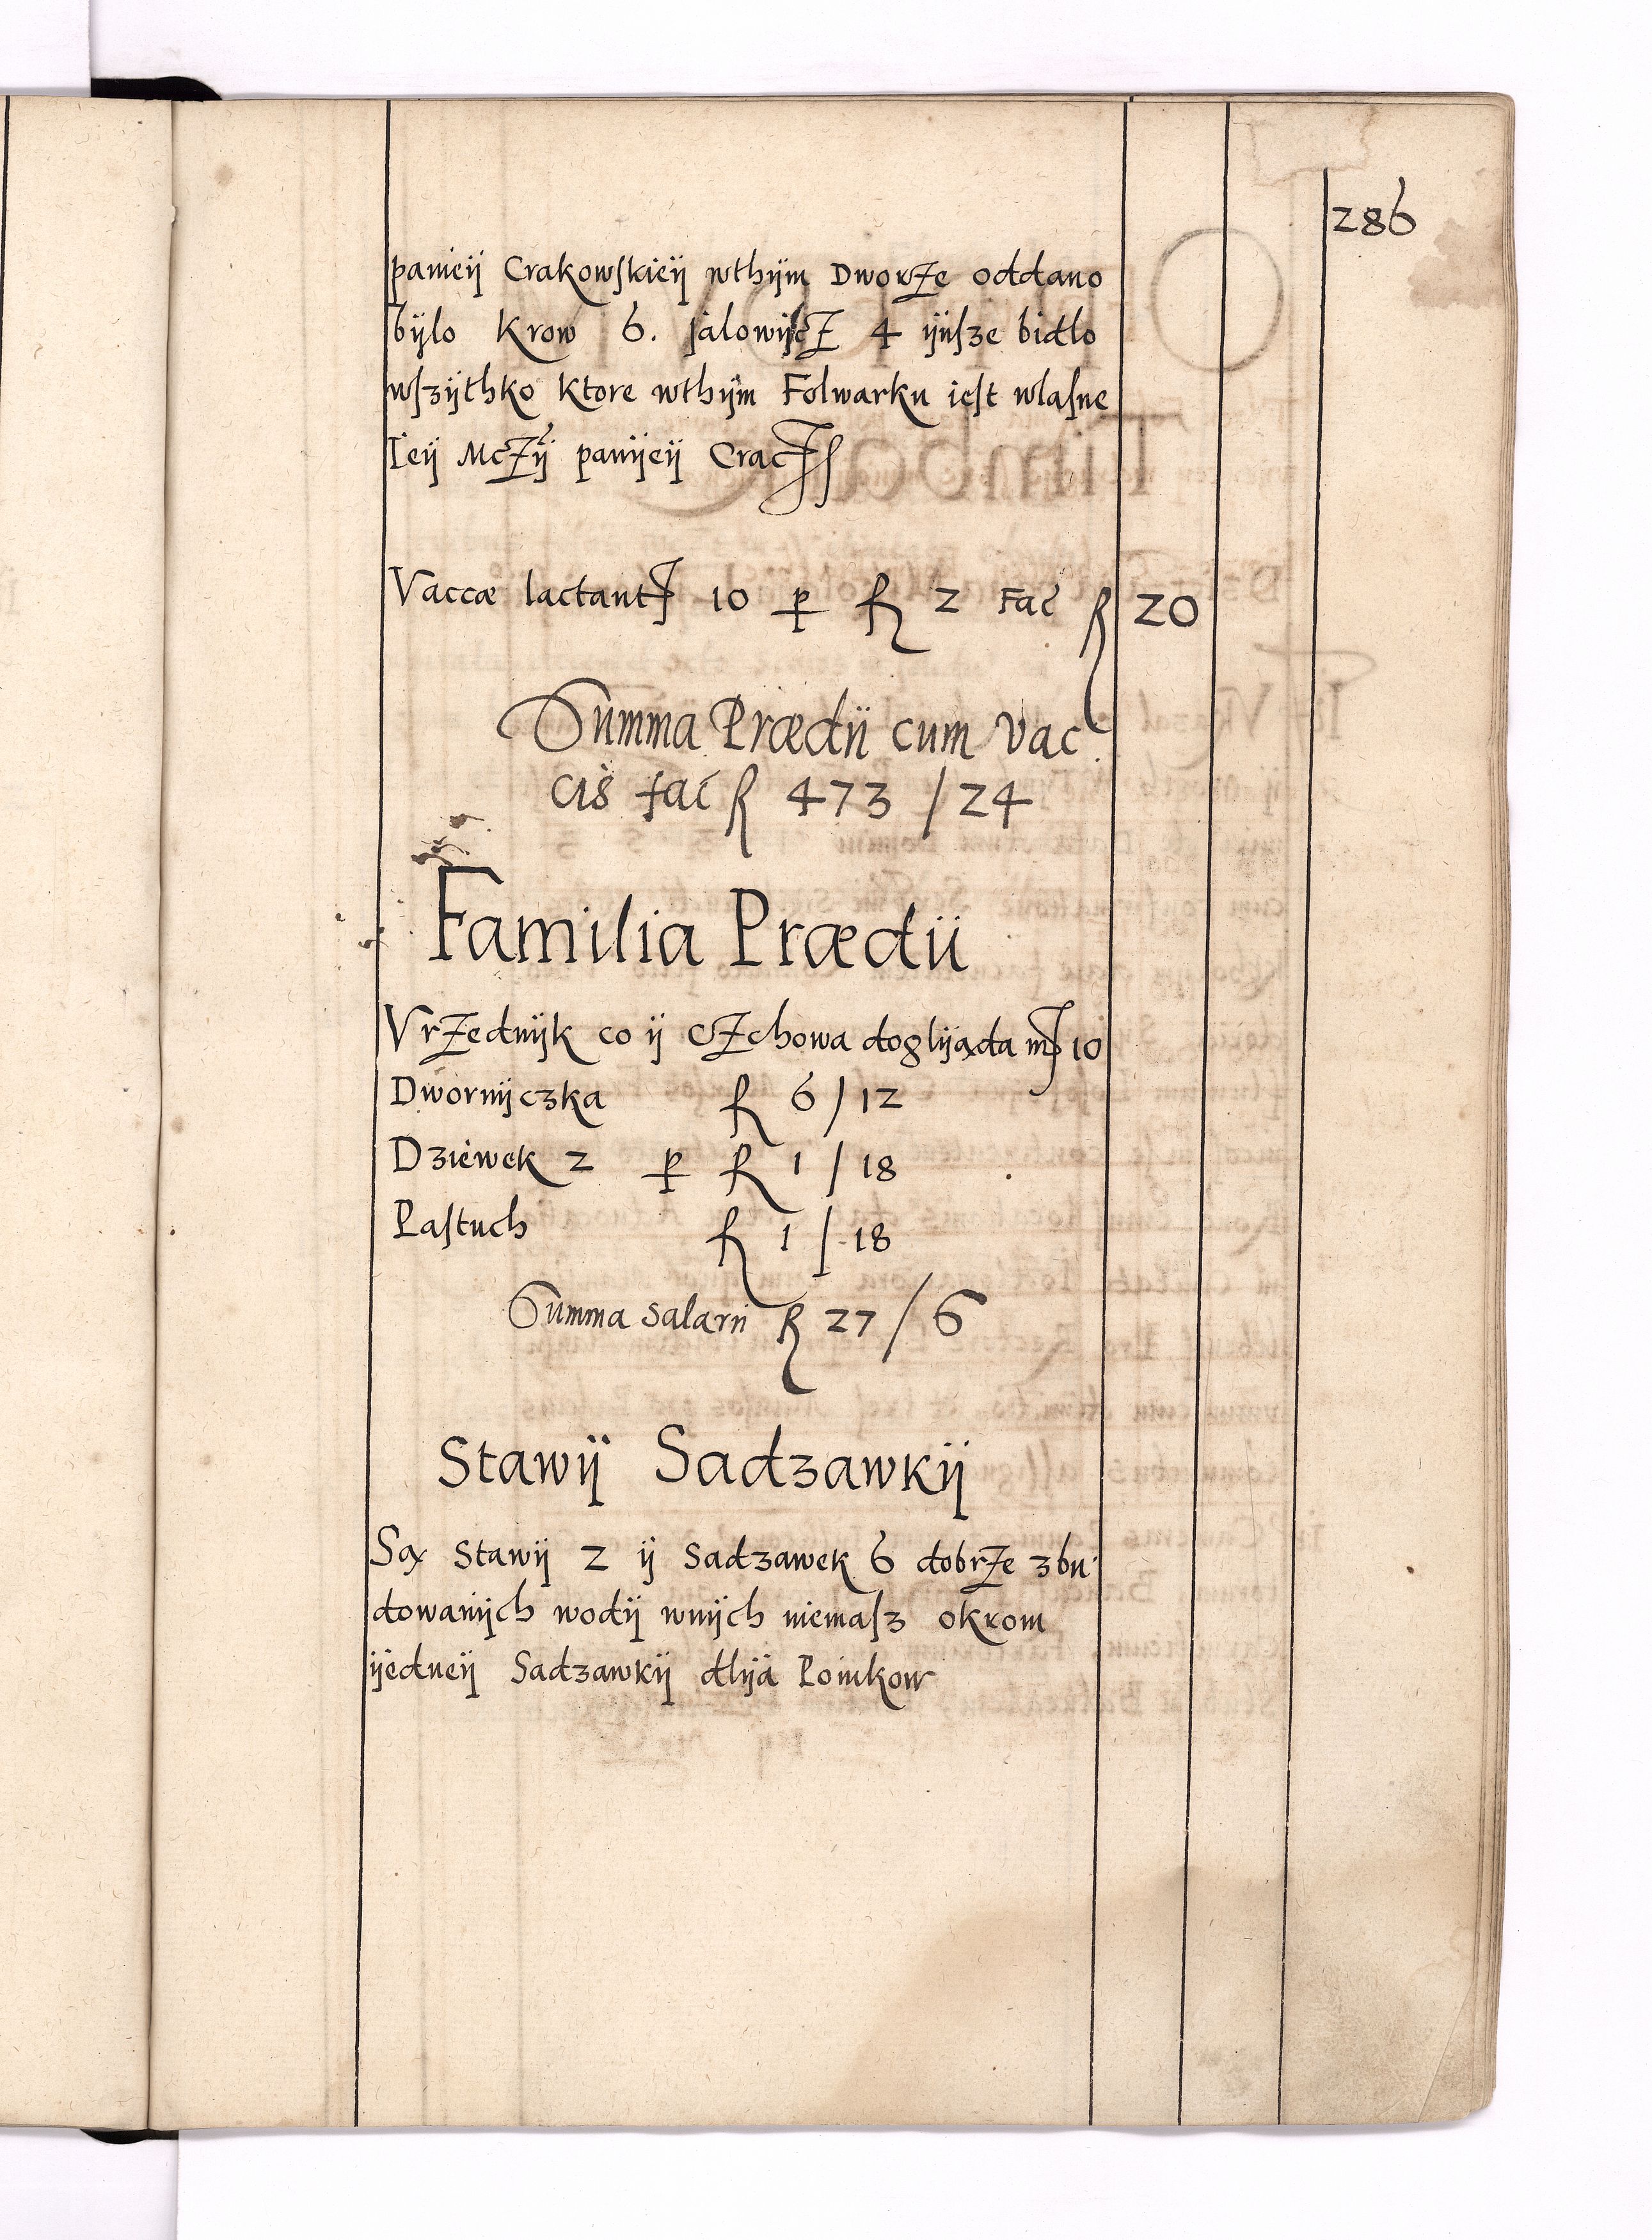 286
panieÿ Crakowskieÿ wthÿm DworZe oddano
bÿlo Krow 6. jalowÿcZ 4 ÿnsze bidlo
wszÿthko Ktore wthÿm Folwarku iest wlasne
Ieÿ McZÿ panÿeÿ Crac
Vaccæ lactant 10 p fl 2 Fac fl 20
Summa Prædii cum Vac
cis fac fl 473 / 24
Familia Prædii
VrZednÿk co ÿ CZchowa doglÿąda m 10
Dwornÿczka fl 6 / 12
Dziewek 2 p fl 1 / 18
Pastuch fl 1 / 18
Summa Salarii fl 27 / 6
Stawÿ Sadzawkÿ
Są Stawÿ 2 ÿ Sadzawek 6 dobrZe zbu
dowanÿch wodÿ wnÿch niemasz okrom
ÿedneÿ Sadzawkÿ dlÿa Poinkow